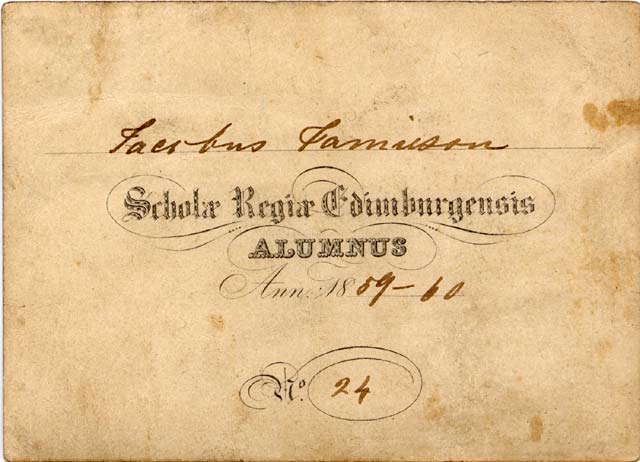 Jacobus Jamieson
Scholæ Regiæ Edimburgensis
ALUMNUS
Ann: 1859-60
No. 24